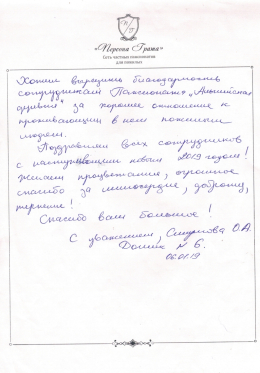 «Перспек Грата»
Сеть частных пансионатов
для пожилых
Хотим выразить благодарность
сотрудникам Пансионата "Английская
деревня" за хорошее отношение к
проживающим в нем пожилым
людям.
Поздравляем всех сотрудников
с наступившим новым 2019 годом!
Желаем процветания, огромное
спасибо за милосердие, доброту,
терпение!
Спасибо вам большое!
С уважением, Смирнова О.А.
Домик N 6.
06.01.19